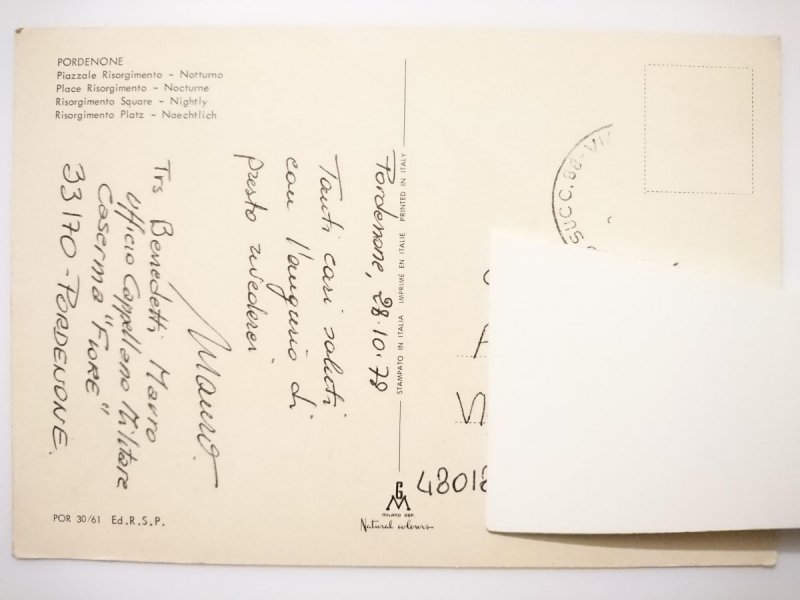 PORDENONE
Piazzale Risorgimento - Notturno
Place Risorgimento - Nocturne
Risorgimento Square - Nightly
Risorgimento Platz - Naechtlich
Pordenone, 28.10.'79
Tanti cari saluti
con l'augurio di
presto rivederci
Mauro.
Trs Benedetti Mauro
Ufficio Cappellano Militare
Caserma "FIORE"
33170 - PORDENONE.
STAMPATO IN ITALIA IMPRIME EN ITALIE PRINTED IN ITALY
SUCC. 88 - VI
48018
GM
MILANO DEP.
Natural colours
POR 30/61 Ed.R.S.P.